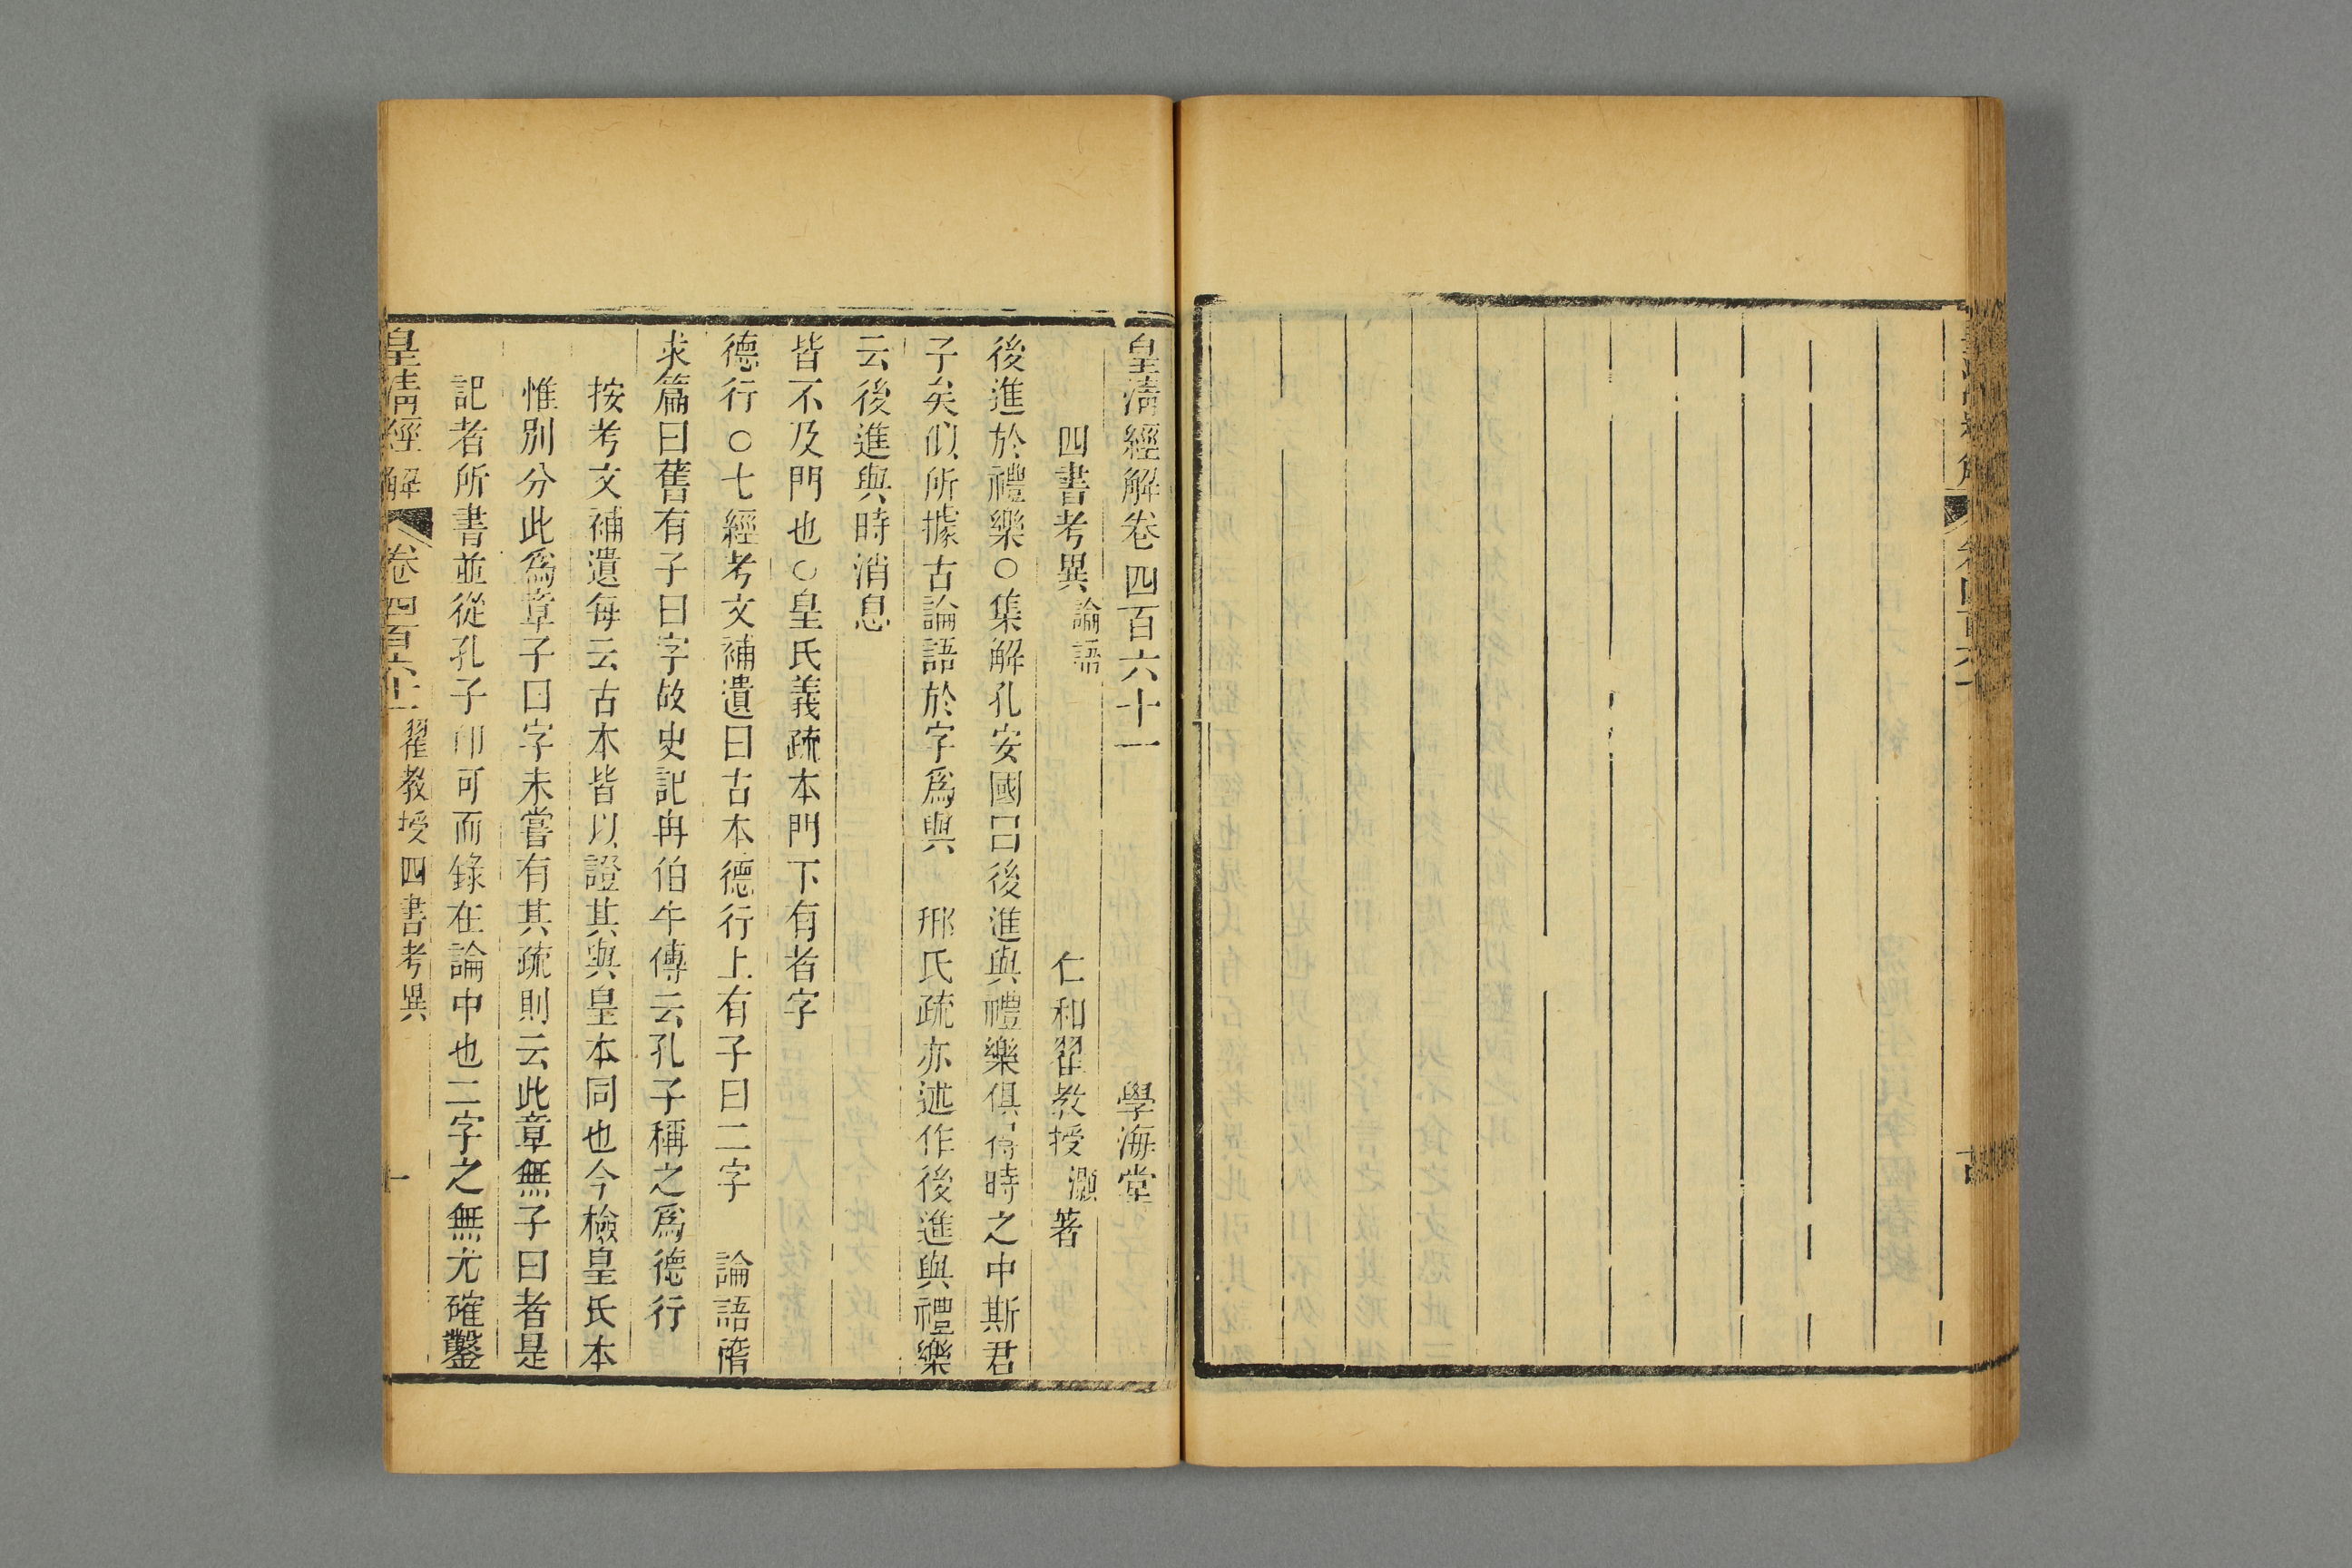 皇清經解卷四百六十一 學海堂
四書考異 論語 仁和翟教授灝著
後進於禮樂○集解孔安國曰後進與禮樂俱得時之中斯君
子矣似所據古論語於字爲與 邢氏疏亦述作後進與禮樂
云後進與時消息
皆不及門也○皇氏義疏本門下有者字
德行○七經考文補遺曰古本德行上有子曰二字 論語稽
求篇曰舊有子曰字故史記冉伯牛傳云孔子稱之爲德行
按考文補遺每云古本皆以證其與皇本同也今檢皇氏本
惟別分此爲章子曰字未嘗有其疏則云此章無子曰者是
記者所書並從孔子印可而錄在論中也二字之無尤確鑿
皇清經解 卷四百六十一 翟教授四書考異 一